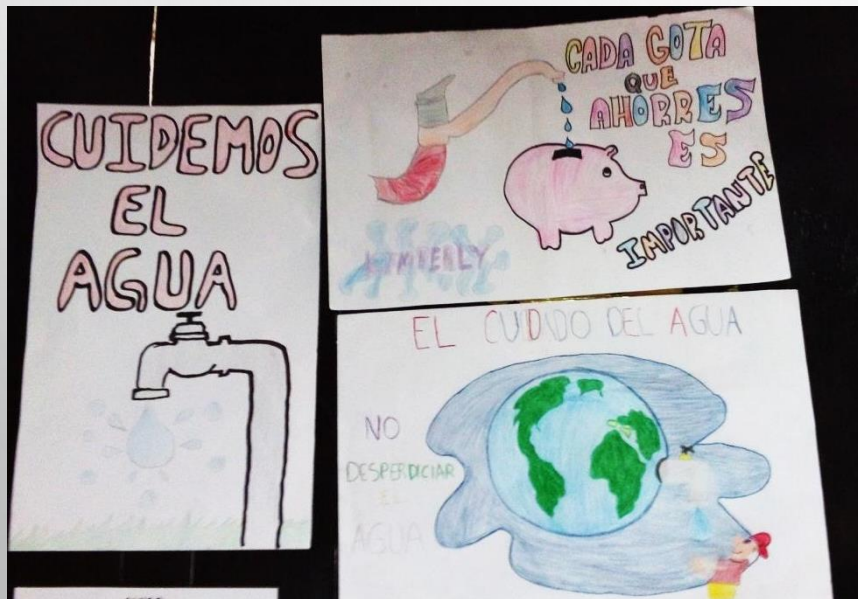 CUIDEMOS
EL
AGUA
CADA GOTA
QUE
AHORRES
ES
IMPORTANTE
KIMBERLY
EL CUIDADO DEL AGUA
NO
DESPERDICIAR
EL
AGUA